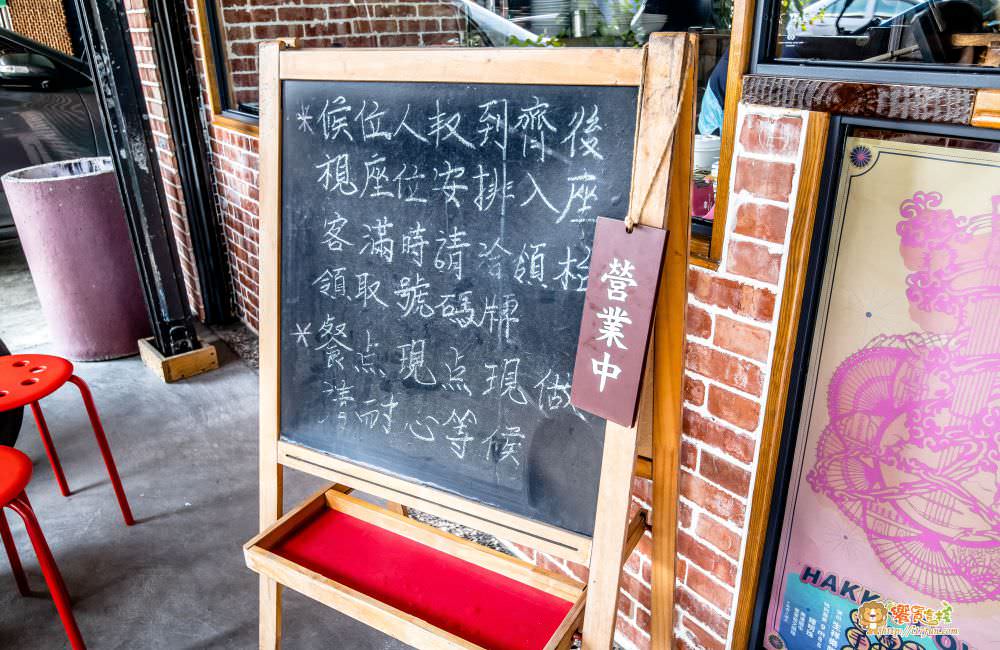 *候位人数到齊後
視座位安排入座
客滿時請洽領
領取號碼牌
*餐点現点現做
請耐心等候
營業中
HAKK